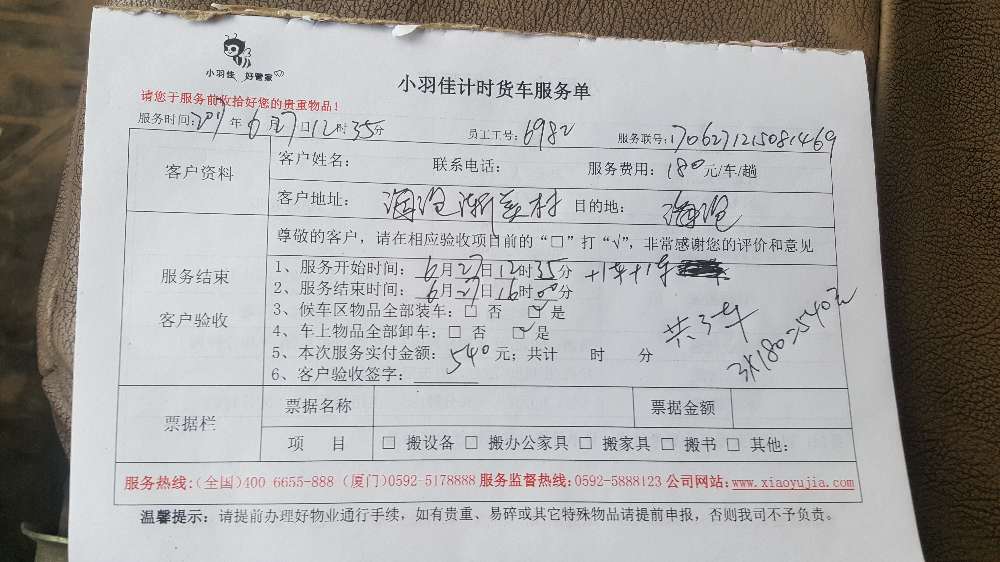 小羽佳 好管家
小羽佳计时货车服务单
请您于服务前收拾好您的贵重物品!
服务时间:2017年6月27日12时35分 员工工号:6982 服务联号:1706271215081469
客户资料
客户姓名: 联系电话: 服务费用:180元/车/趟
客户地址:海沧渐美村 目的地:海沧
服务结束
客户验收
尊敬的客户,请在相应验收项目前的“□”打“√”,非常感谢您的评价和意见
1、服务开始时间:6月27日12时35分 +1车+1车
2、服务结束时间:6月27日16时00分
3、候车区物品全部装车:□ 否 ☑ 是
4、车上物品全部卸车:□ 否 ☑ 是
共3车
5、本次服务实付金额:540元;共计 时 分
3X180=540元
6、客户验收签字:
票据栏
票据名称 票据金额
项 目 □ 搬设备 □ 搬办公家具 □ 搬家具 □ 搬书 □ 其他:
服务热线:(全国)400 6655-888 (厦门)0592-5178888 服务监督热线:0592-5888123 公司网站:www.xiaoyujia.com
温馨提示:请提前办理好物业通行手续,如有贵重、易碎或其它特殊物品请提前申报,否则我司不予负责。